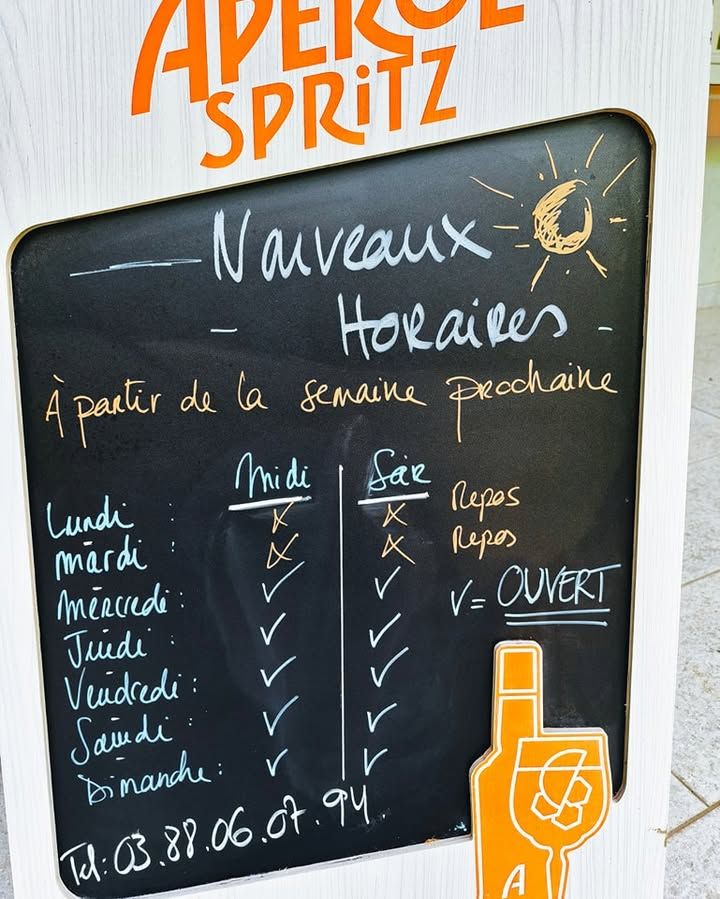 APEROL
SPRiTZ
Nouveaux
Horaires
À partir de la semaine prochaine
Midi Soir
Lundi : X X Repos
Mardi : X X Repos
Mercredi : ✓ ✓ V = OUVERT
Jeudi : ✓ ✓
Vendredi : ✓ ✓
Samdi : ✓ ✓
Dimanche : ✓ ✓
Tel: 03.88.06.07.94
A